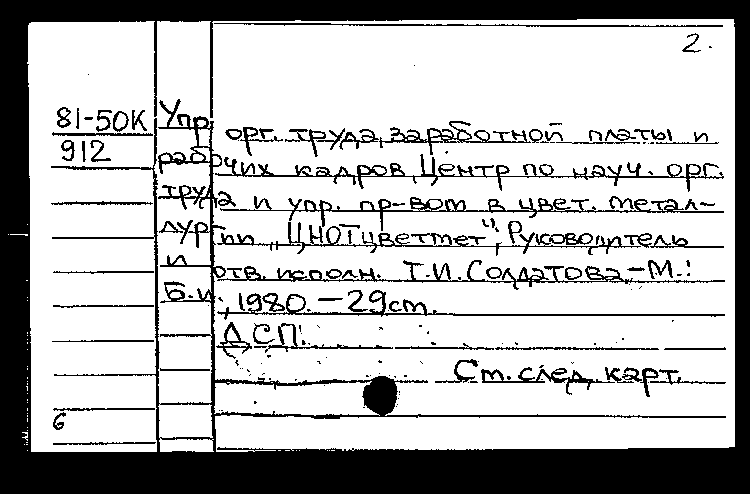 2.
81-50К Упр. орг. труда, заработной платы и
912 рабочих кадров, Центр по науч. орг.
труда и упр. пр-вом в цвет. метал-
лургии „ЦНОТцветмет“, Руководитель
и отв. исполн. Т.И. Солдатова.-М.:
Б.и., 1980.-29ст.
ДСП.
См. след. карт.
6